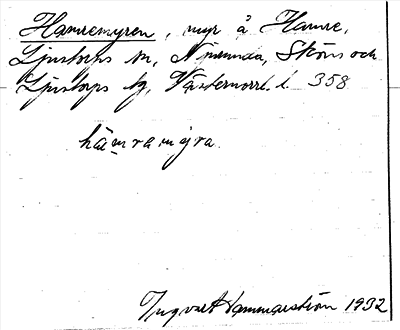 Hamremyren, myr å Hamre,
Ljustorps sn, Njurunda, Sköns och
Ljustorps tg, Västernorrl. l. 358
hämramyra
Ingvar Hammarström 1932